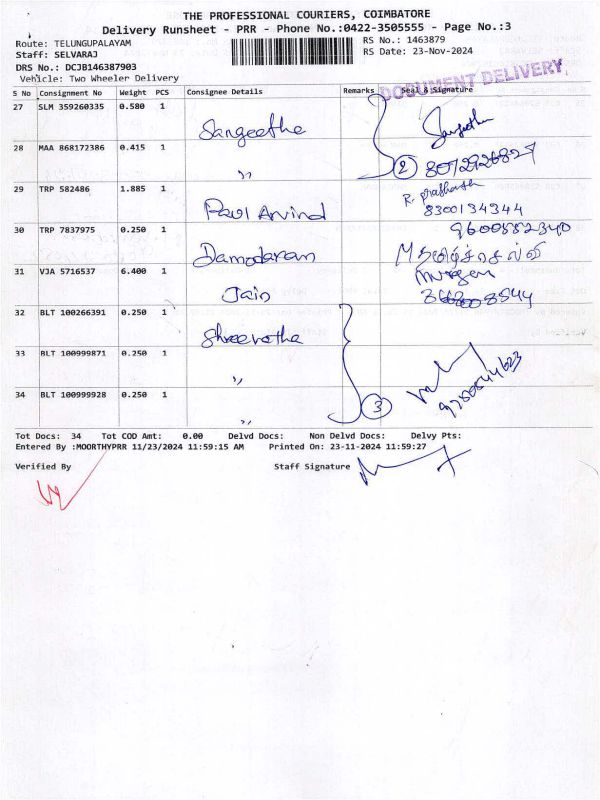 THE PROFESSIONAL COURIERS, COIMBATORE
Delivery Runsheet - PRR - Phone No.:0422-3505555 - Page No.:3
Route: TELUNGUPALAYAM RS No.: 1463879
Staff: SELVARAJ RS Date: 23-Nov-2024
DRS No.: DCJB146387903
Vehicle: Two Wheeler Delivery
DOCUMENT DELIVERY
S No Consignment No Weight PCS Consignee Details Remarks Seal & Signature
27 SLM 359260335 0.580 1
Sangeetha Sangeetha
28 MAA 868172386 0.415 1
,, 2
29 TRP 582486 1.885 1 R. Prashanth
Paul Arvind 8300134344
30 TRP 7837975 0.250 1 9600552340
Damodaran
31 VJA 5716537 6.400 1 Murgan
Jain
32 BLT 100266391 0.250 1
Shreevatha
33 BLT 100999871 0.250 1
,,
34 BLT 100999928 0.250 1 9750544623
,, 3
Tot Docs: 34 Tot COD Amt: 0.00 Delvd Docs: Non Delvd Docs: Delvy Pts:
Entered By :MOORTHYPRR 11/23/2024 11:59:15 AM Printed On: 23-11-2024 11:59:27
Verified By Staff Signature